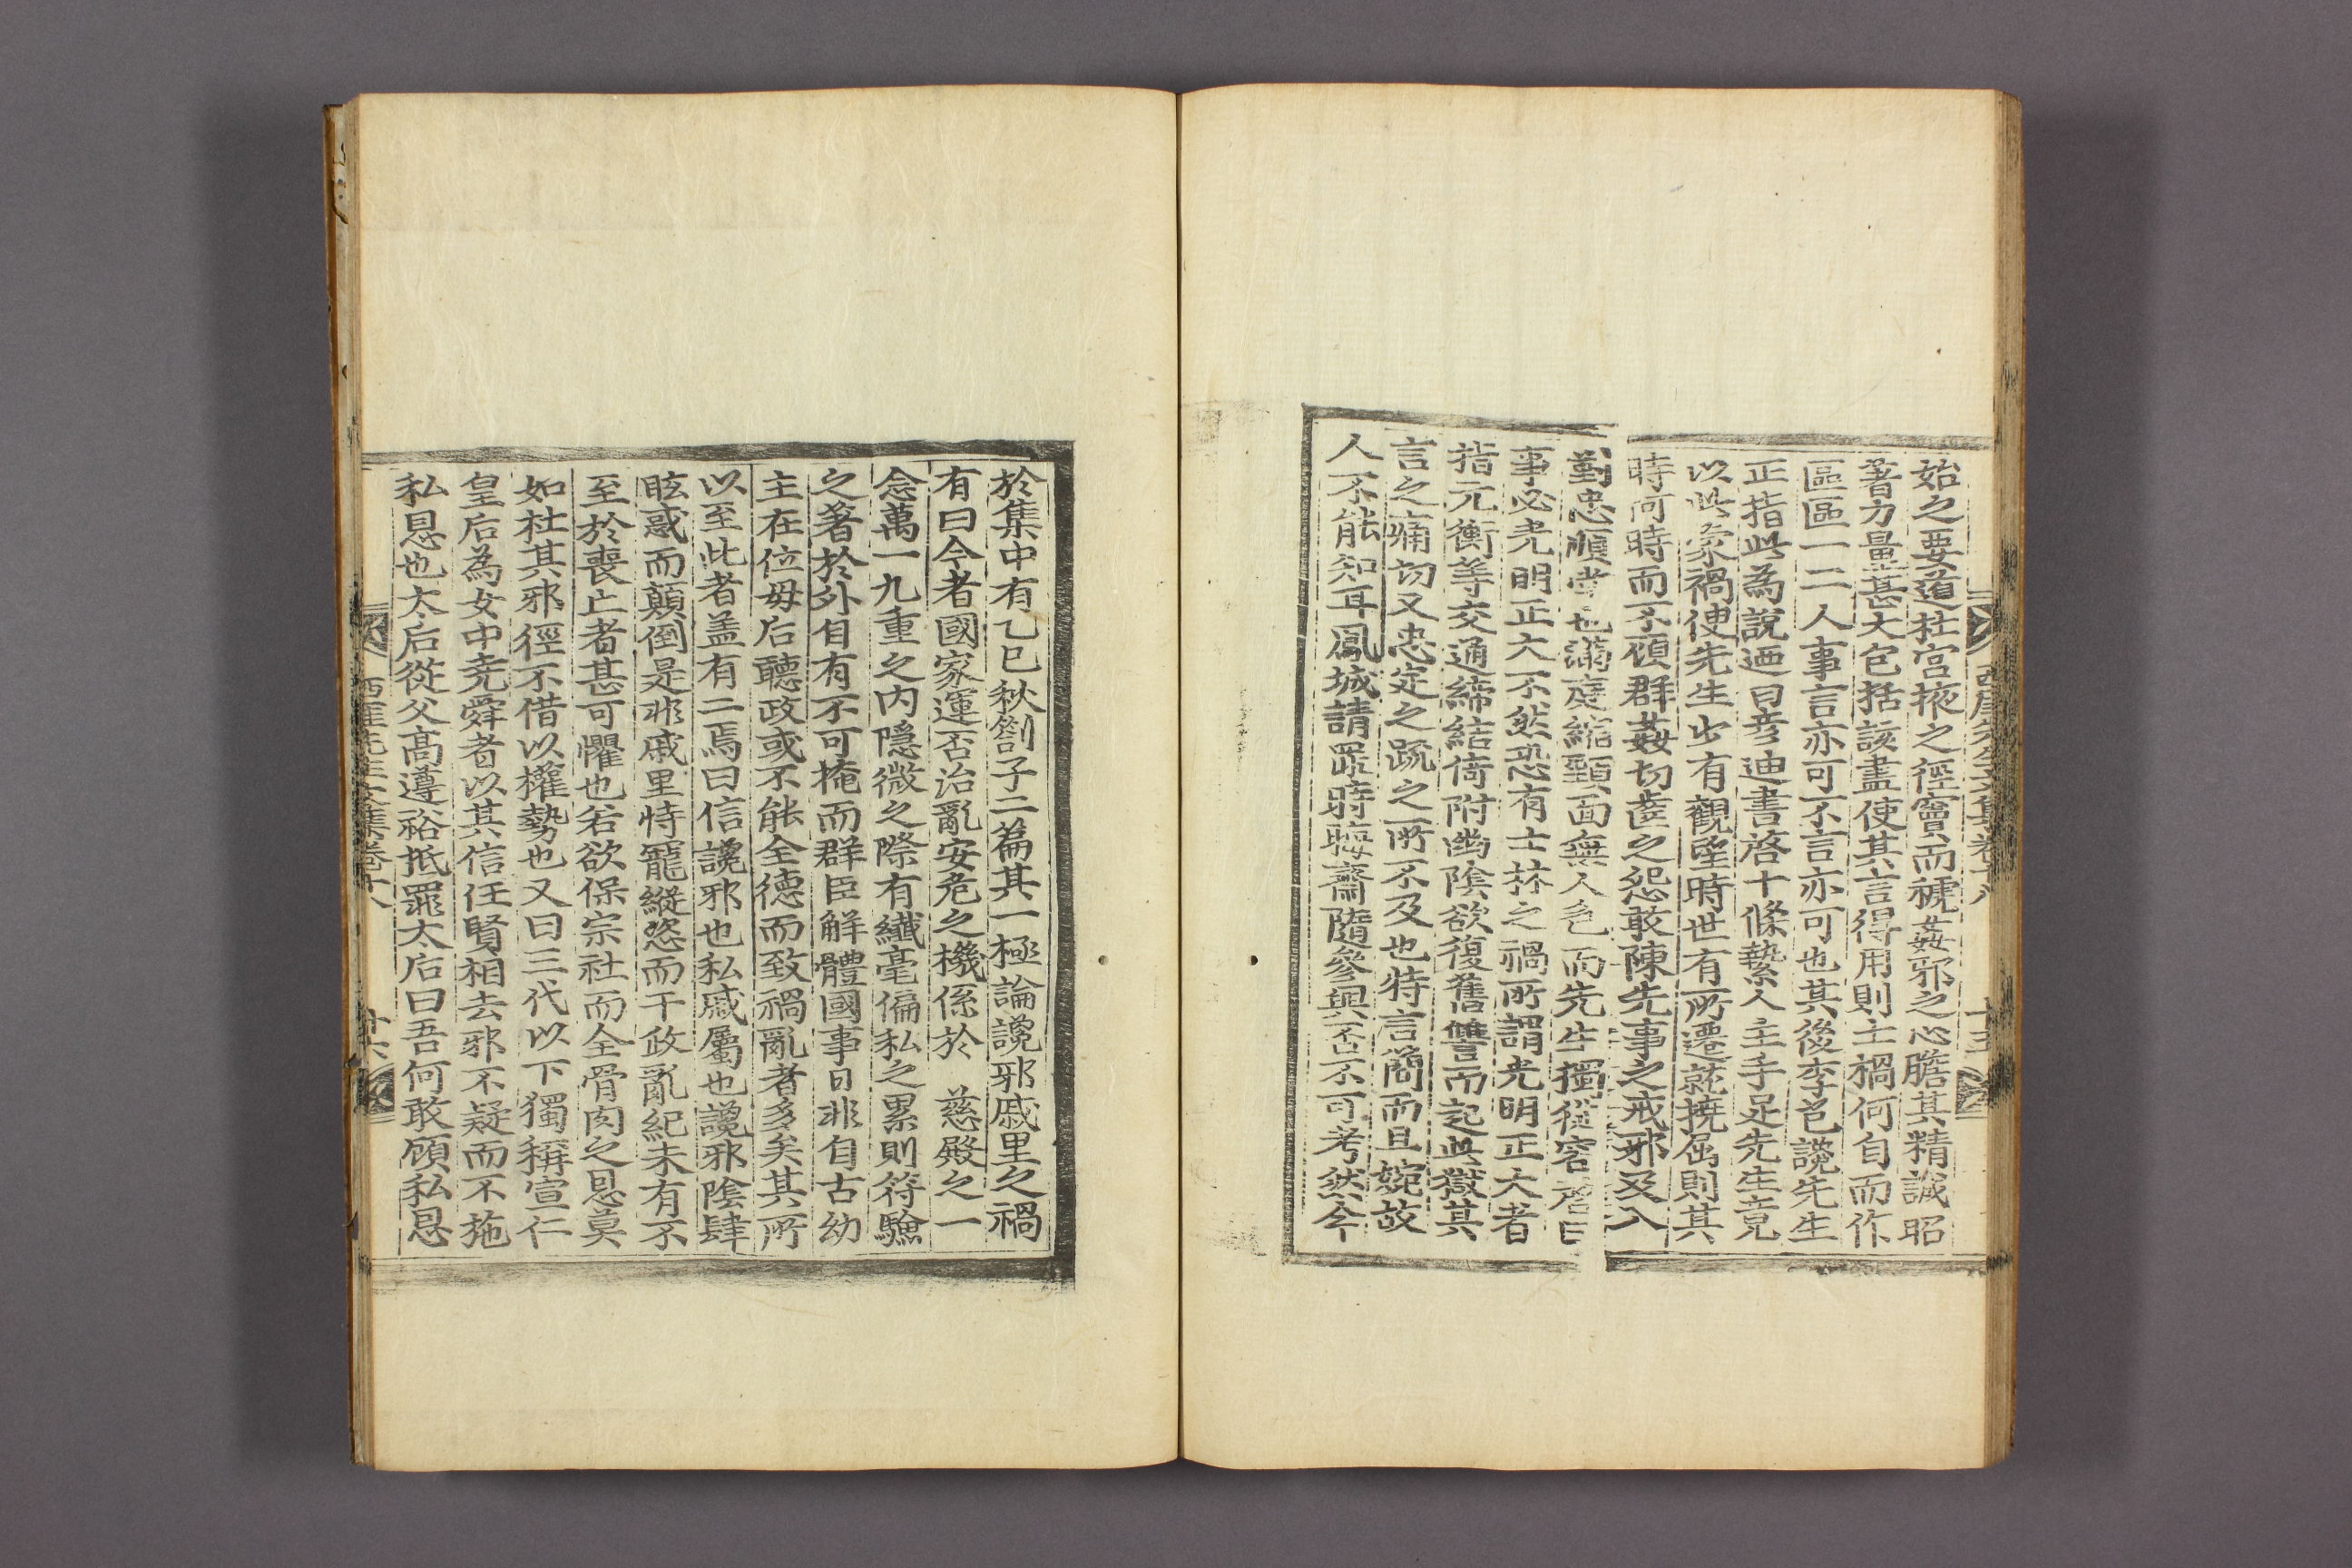 西厓先生文集卷十八
十五
始之要道杜宮掖之徑竇而褫姦邪之心膽其精誠昭
著力量甚大包括該盡使其言得用則士禍何自而作
區區一二人事言亦可不言亦可也其後李芑讒先生
正指此為說迺曰彦迪書啓十條縶人主手足先生竟
以此蒙禍使先生少有觀望時世有所遷就撓屈則其
時何時而不顧群姦切齒之怨敢陳先事之戒邪及入
對忠順堂也滿庭縮頸面無人色而先生獨從容啓曰
事必光明正大不然恐有士林之禍所謂光明正大者
指元衡等交通締結倚附幽陰欲復舊讐而起此獄其
言之痛切又忠定之疏之所不及也特言簡而且婉故
人不能知耳鳳城請罪時晦齋隨參與否不可考然今
於集中有乙巳秋劄子二篇其一極論讒邪戚里之禍
有曰今者國家運否治亂安危之機係於 慈殿之一
念萬一九重之内隱微之際有纖毫偏私之累則符驗
之著於外自有不可掩而群臣解體國事日非自古幼
主在位毋后聽政或不能全德而致禍亂者多矣其所
以至此者盖有二焉曰信讒邪也私戚屬也讒邪陰肆
眩惑而顛倒是非戚里恃寵縱恣而干政亂紀未有不
至於喪亡者甚可懼也若欲保宗社而全骨肉之恩莫
如杜其邪徑不借以權勢也又曰三代以下獨稱宣仁
皇后為女中堯舜者以其信任賢相去邪不疑而不施
私恩也太后從父高遵裕抵罪太后曰吾何敢顧私恩
西厓先生文集卷十八
十六